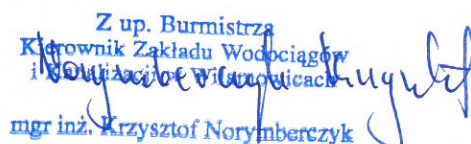 Z up. Burmistrza
Kierownik Zakładu Wodociągów
i Kanalizacji w Wilamowicach
mgr inż. Krzysztof Norymberczyk